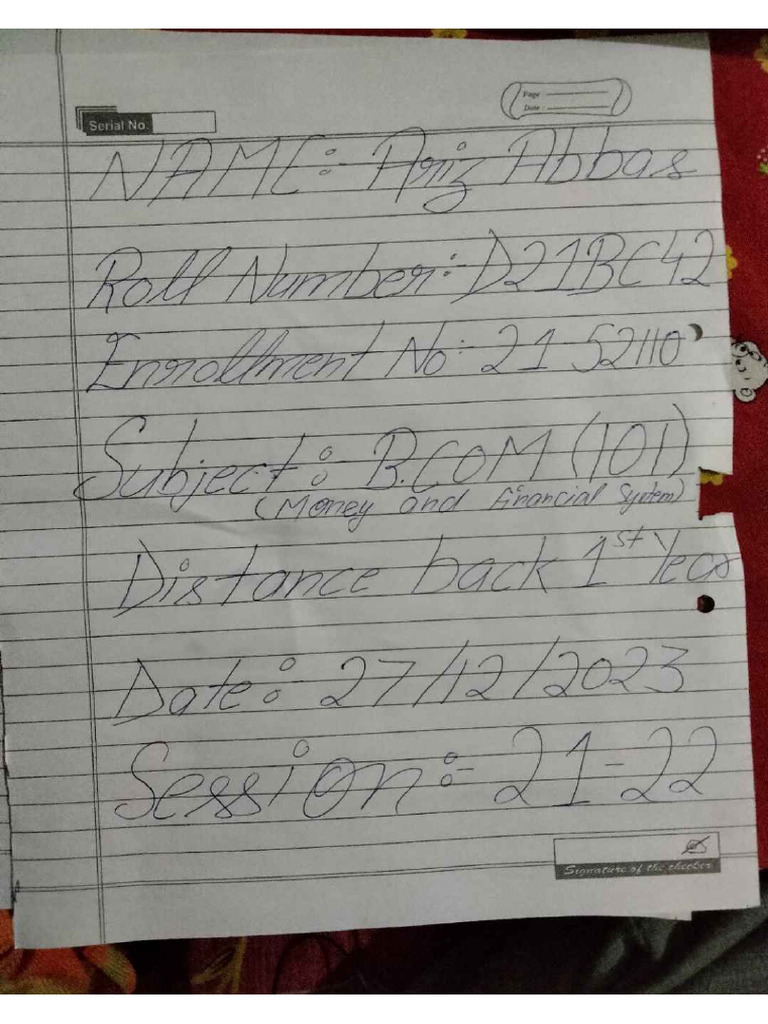 Page
Date :
Serial No.
NAME:- Ariz Abbas
Roll Number:- D21BC42
Enrollment No:- 21 52110
Subject: B.COM (101)
(Money and financial System)
Distance back 1st Year
Date: 27/12/2023
Session:- 21-22
Signature of the checker